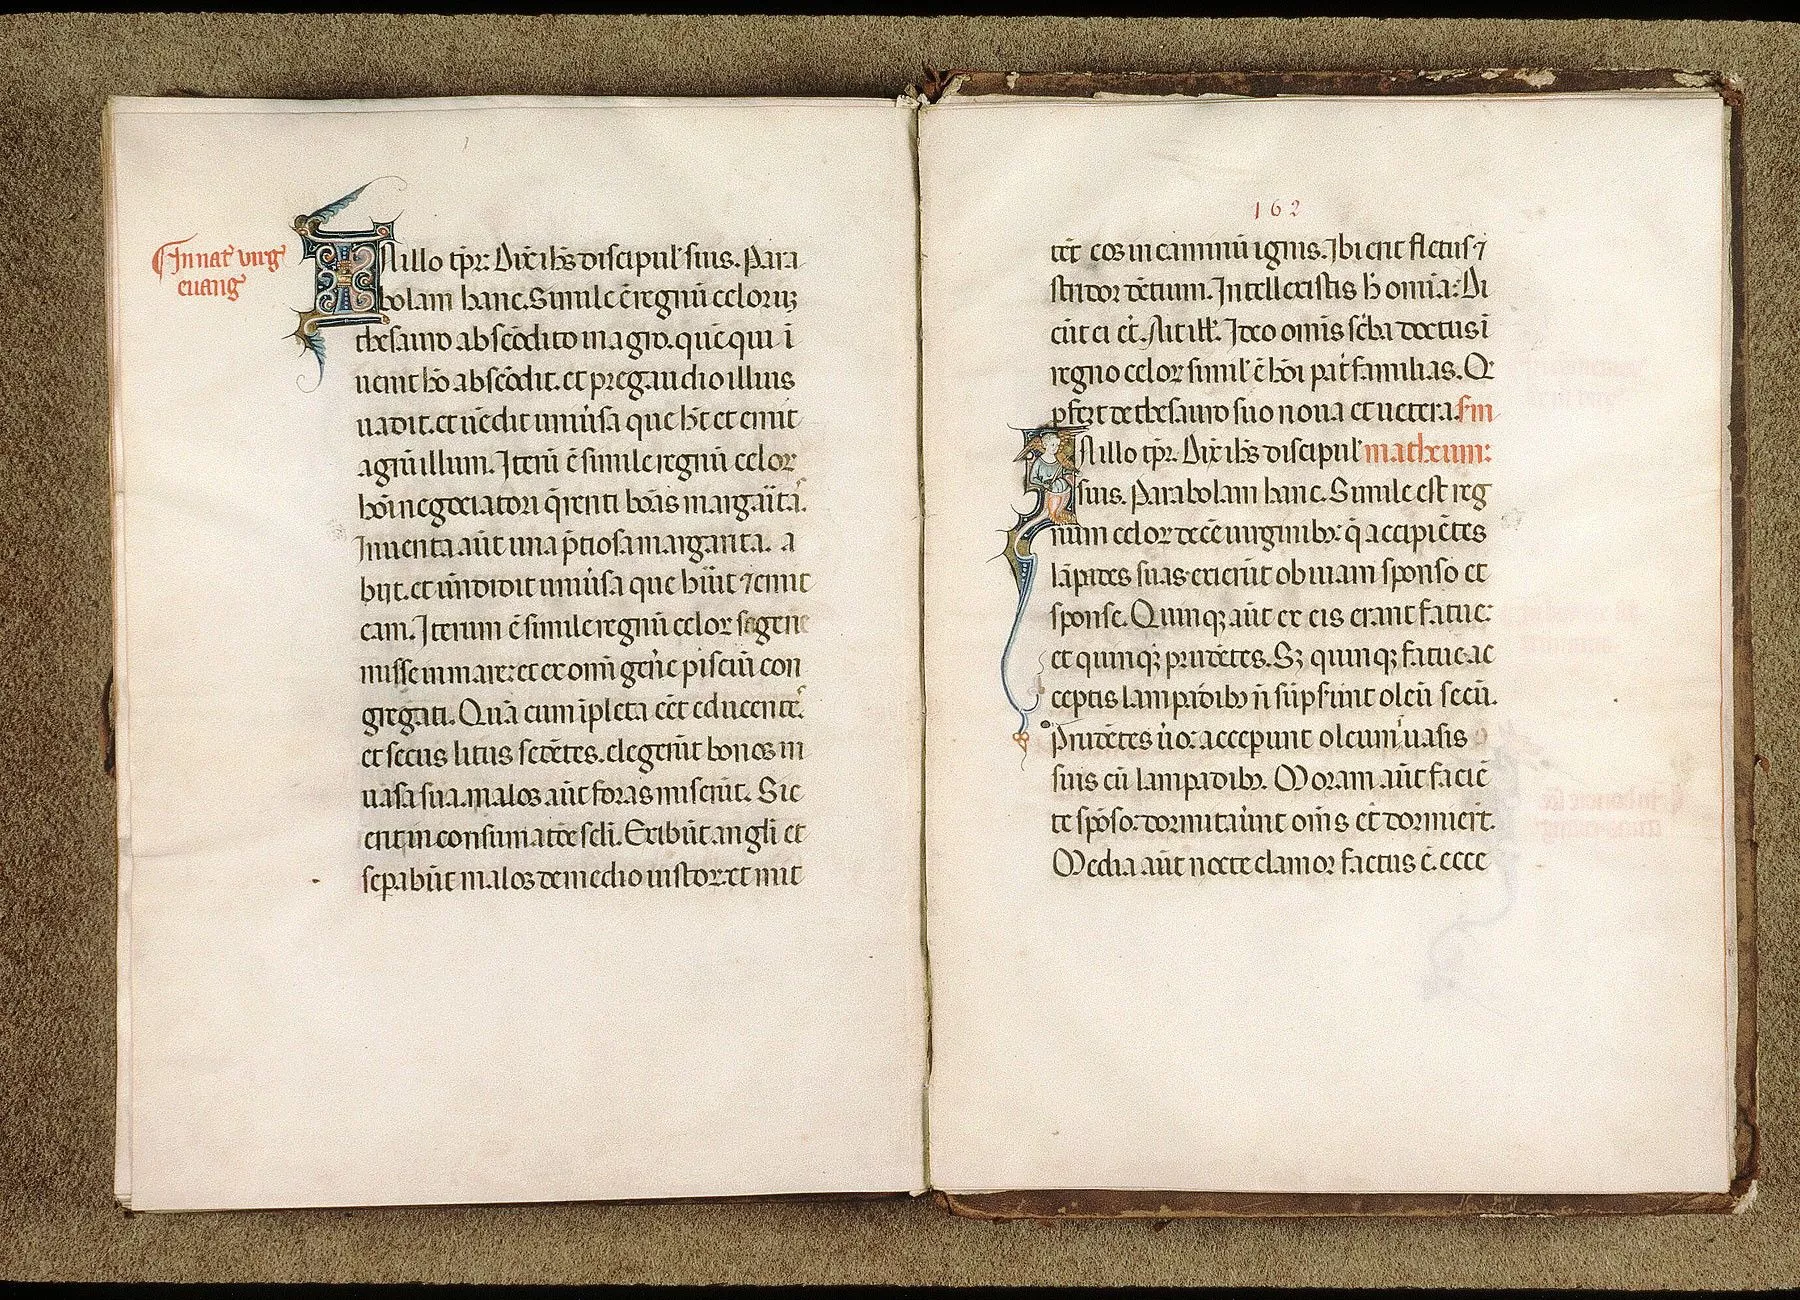 In nat̄ virḡ
euang̃
In illo tp̄r. Dix̄ ih̄s discipul' suis. Para
bolam hanc. Simile ē regnū celoruꝫ
thesauro abscōdito in agro. quē qui ī
uenit hō abscōdit. et pre gaudio illius
uadit. et uēdit uniũsa que h̄t et emit
agrū illum. Iterū ē simile regnū celor
hōi negociatori q̄renti bōas margaritā.
Inuenta aūt una p̄tiosa margarita. a
biit. et uēndidit uniũsa que hūit ⁊ emit
eam. Iterum ē simile regnū celor sagene
misse in mare: et ex om̄i gen̄e pisciū con
gregati. Quā cum īpleta eēt educente᷒.
et secus litus sedētes. elegerūt bonos in
uasa sua. malos aūt foras miserūt. Sic
erit in consumatōe sc̄li. Exibūt angl̄i et
sep̄abūt malos de medio iustor. et mit
162
tēt eos in caminū ignis. Ibi erit fletus ⁊
stridor dētium. Intellexistis h̄ om̄ia: Di
cūt ei ēt. Ait ill'. Ideo om̄is sc̄ba doctus ī
regno celor simil' ē hōi pat̄familias. Q
ꝓfert de thesauro suo noua et uetera. Sm̄
In illo tp̄r. Dix̄ ih̄s discipul' matheum:
suis. Parabolam hanc. Simile est reg
num celor decē uirginibꝫ: q̄ accipiētes
lāpades suas exierūt obuiam sponso et
sponse. Quinqꝫ aūt ex eis erant fatue:
et quinqꝫ prudētes. Sꝫ quinqꝫ fatue ac
ceptis lampadibꝫ n̄ sūpsūnt oleū secū.
Prudētes ūo: accep̄unt oleum ī uasis
suis cū lampadibꝫ. Moram aūt faciē
te spōso: dormitaūnt om̄s et dormiert̄.
Media aūt nocte clamor factus ē. ecce